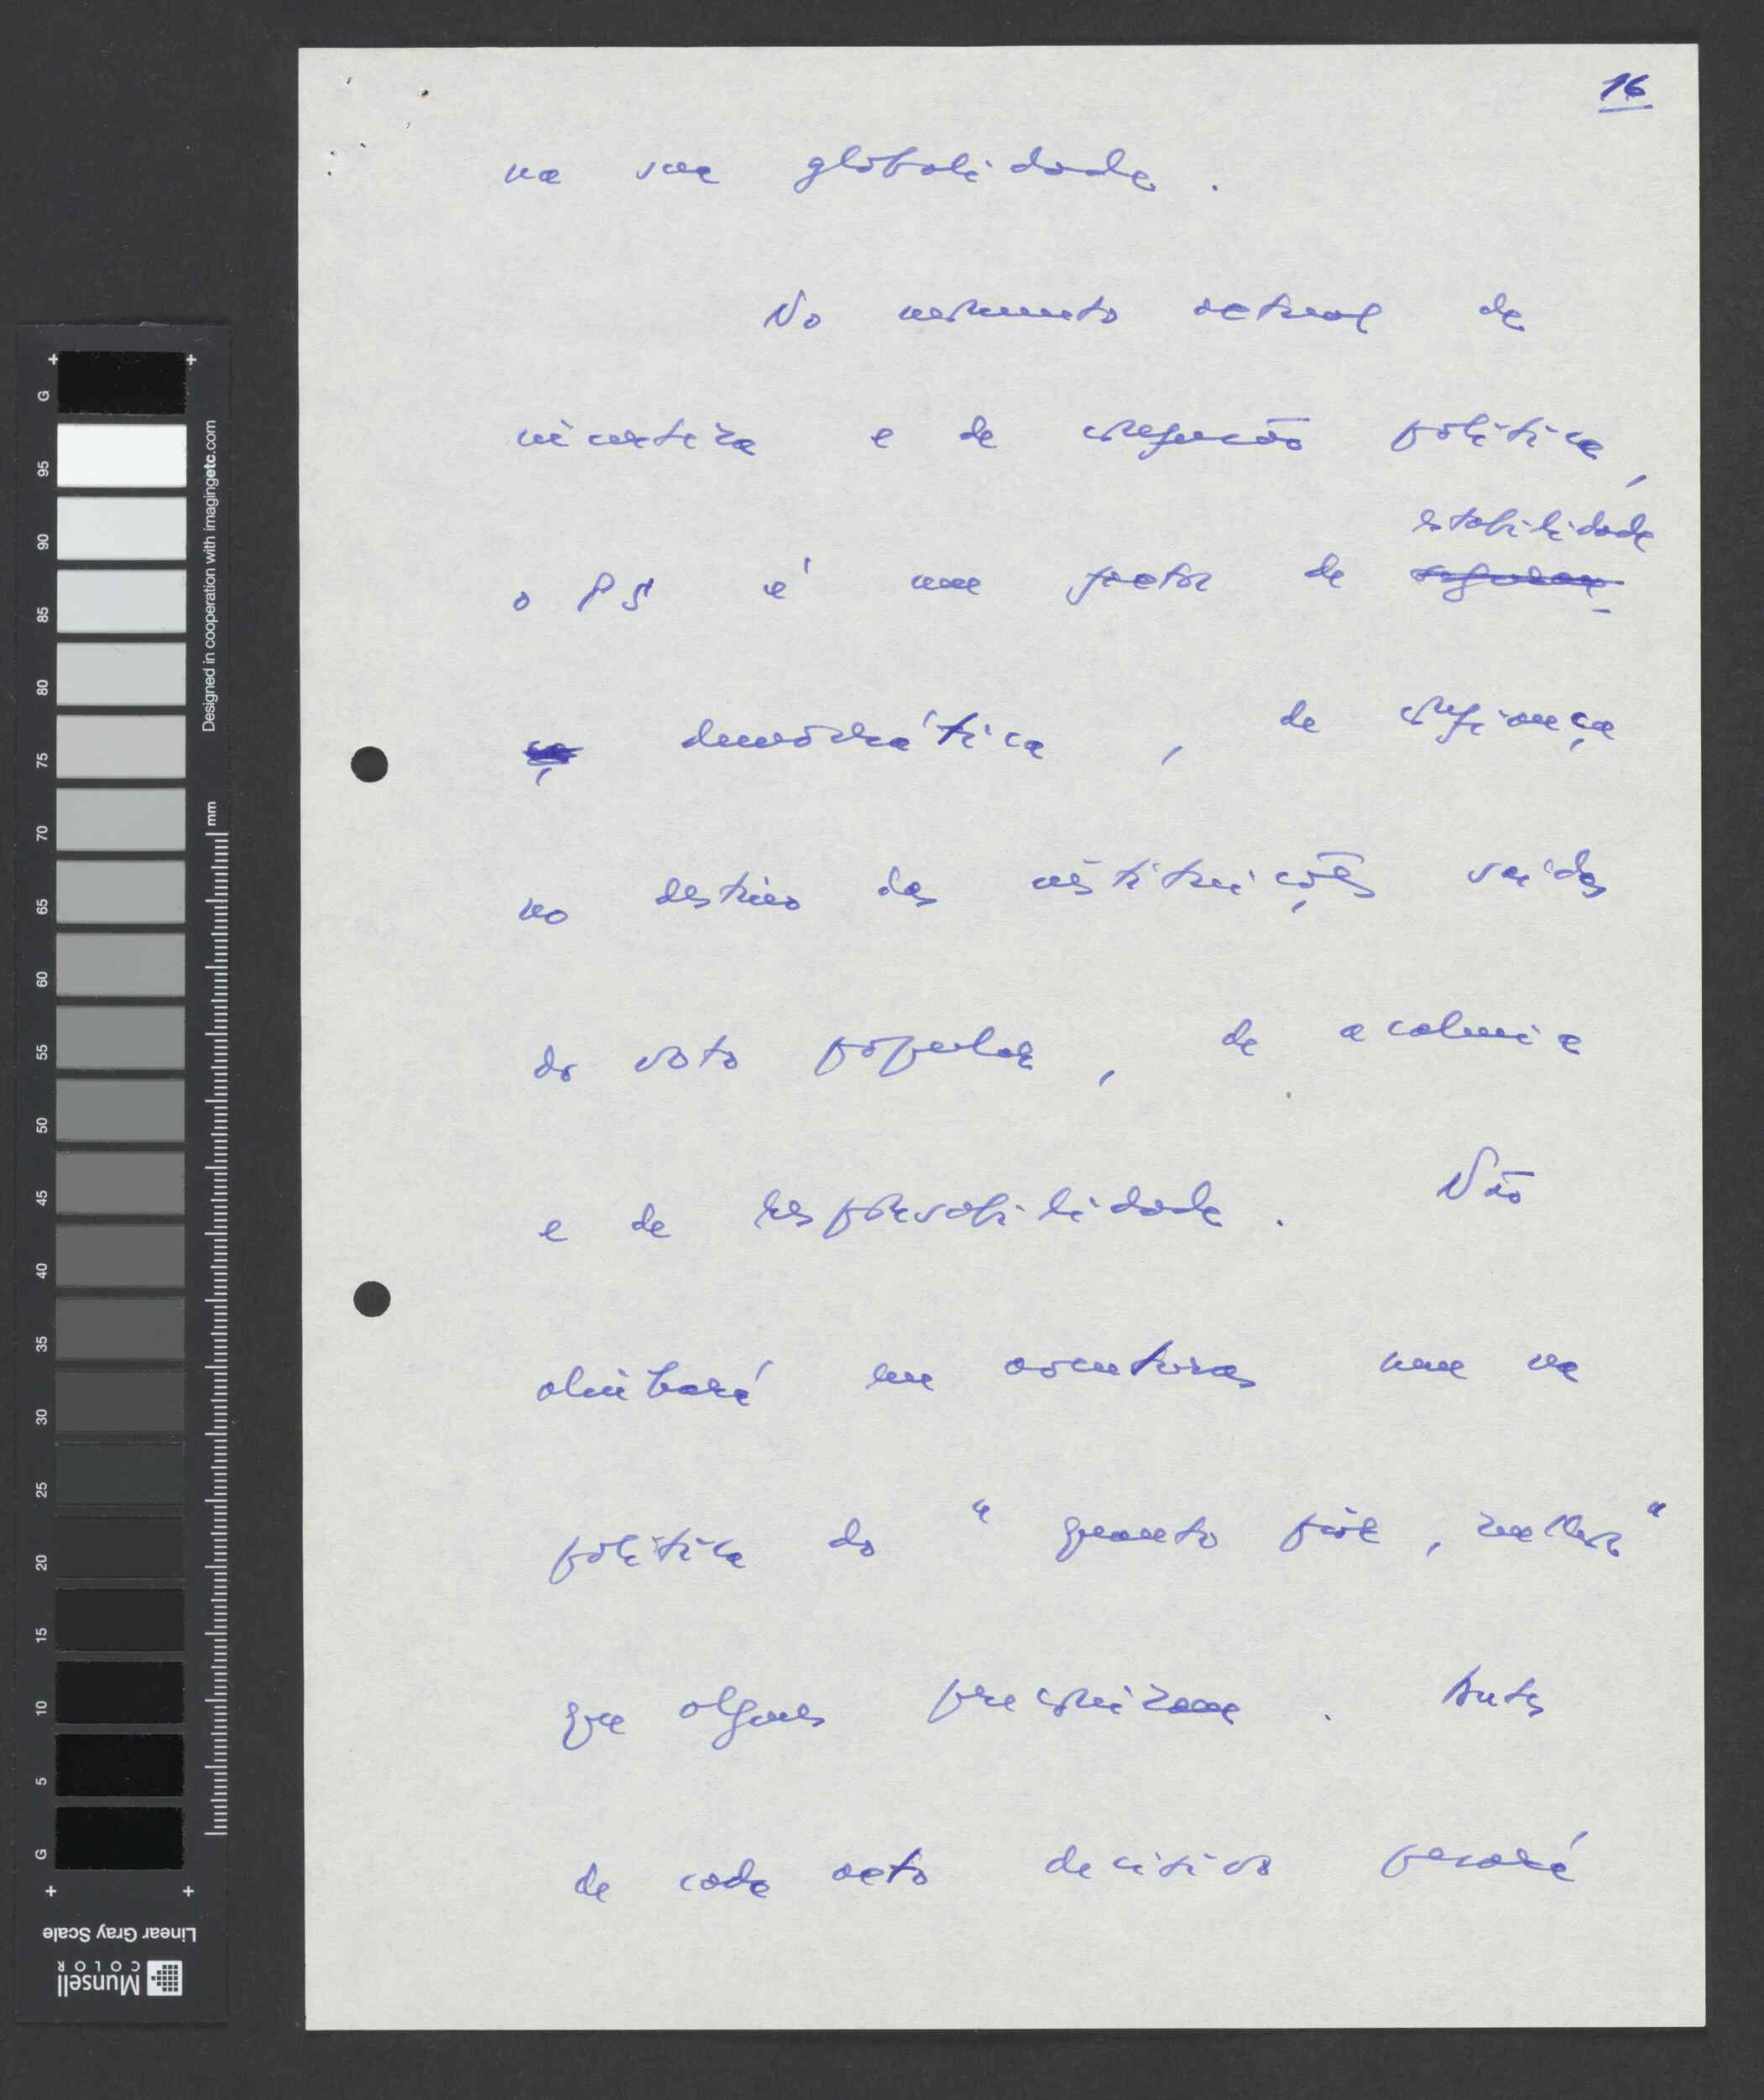 16
na sua globalidade.
No momento actual de
incerteza e de confusão política,
estabilidade
o PS é um factor de seguran-
ça democrática, de confiança
no destino das instituições saídas
do voto popular, de acalmia
e de responsabilidade. Não
alinhará em aventuras nem na
política do "quanto pior, melhor"
que alguns preconizam. Antes
de cada acto decisivo pesará
G
95
90
85
80
75
70
65
60
55
50
45
40
35
30
25
20
15
10
5
G
Designed in cooperation with imagingetc.com
mm
Linear Gray Scale
Munsell
COLOR